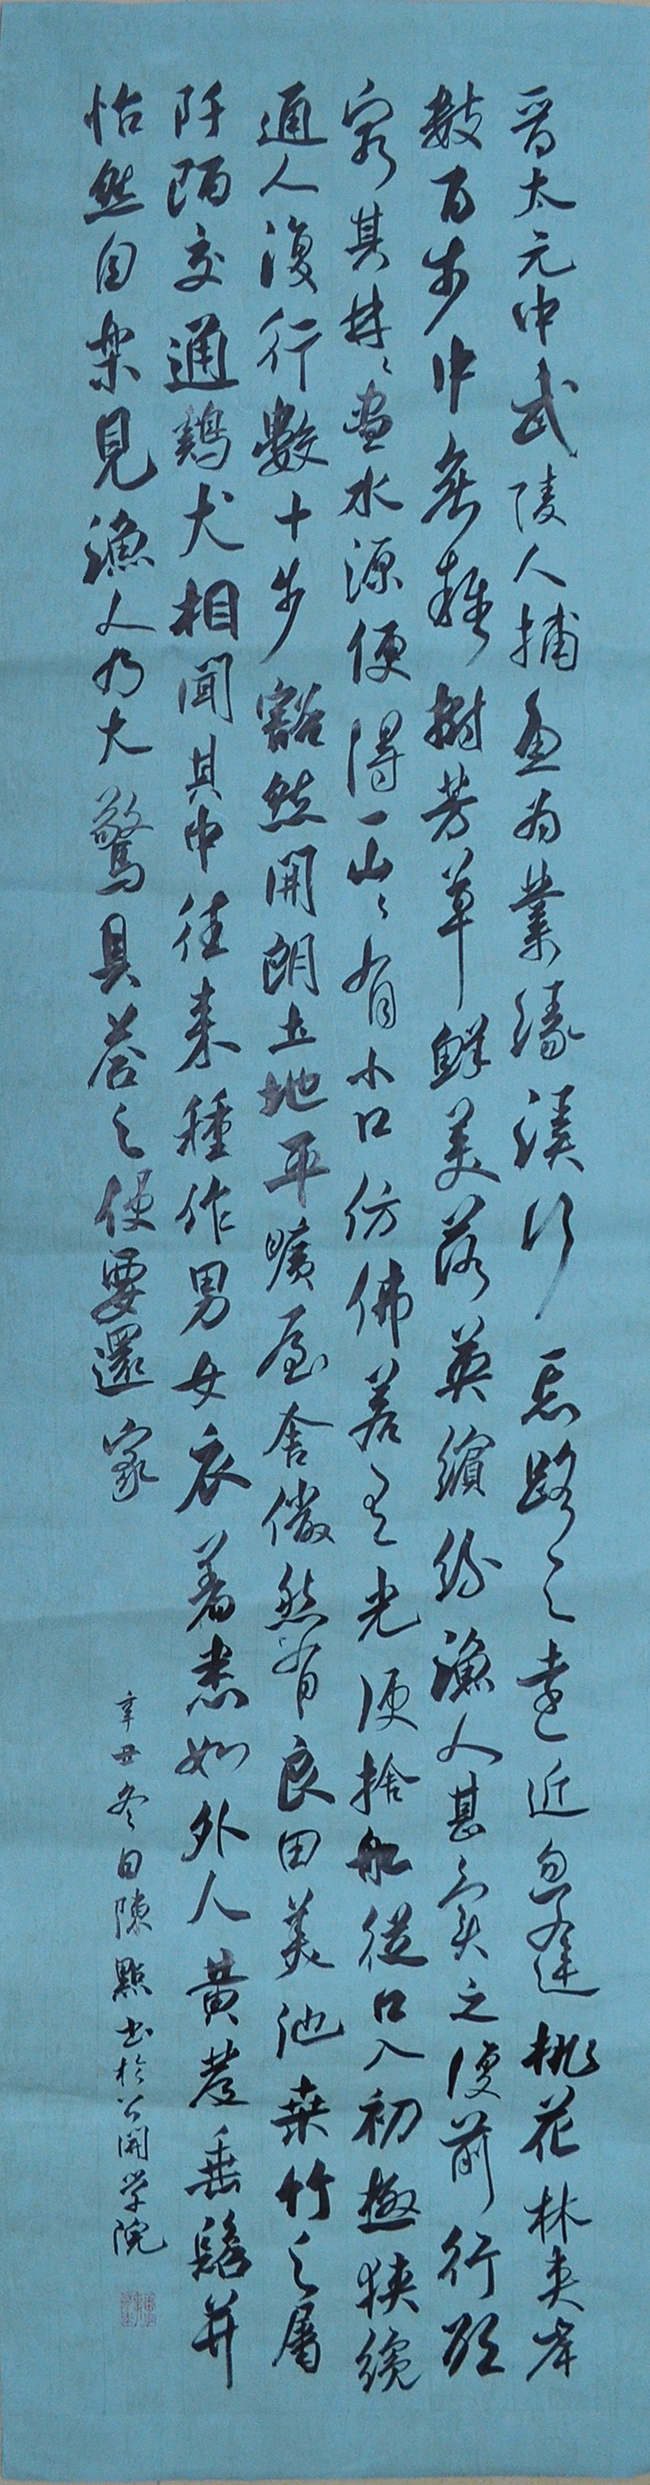 晋太元中武陵人捕鱼为業緣溪行忘路之遠近忽逢桃花林夹岸
數百步中無雜樹芳草鲜美落英繽纷漁人甚異之復前行欲
窮其林々盡水源便得一山々有小口仿佛若有光便捨船從口入初極狭纔
通人復行數十步豁然開朗土地平曠屋舍儼然有良田美池桑竹之屬
阡陌交通鷄犬相聞其中往来種作男女衣着悉如外人黄髮垂髫并
怡然自樂見漁人乃大驚具答之便要還家
辛丑冬日陳點书於公開学院